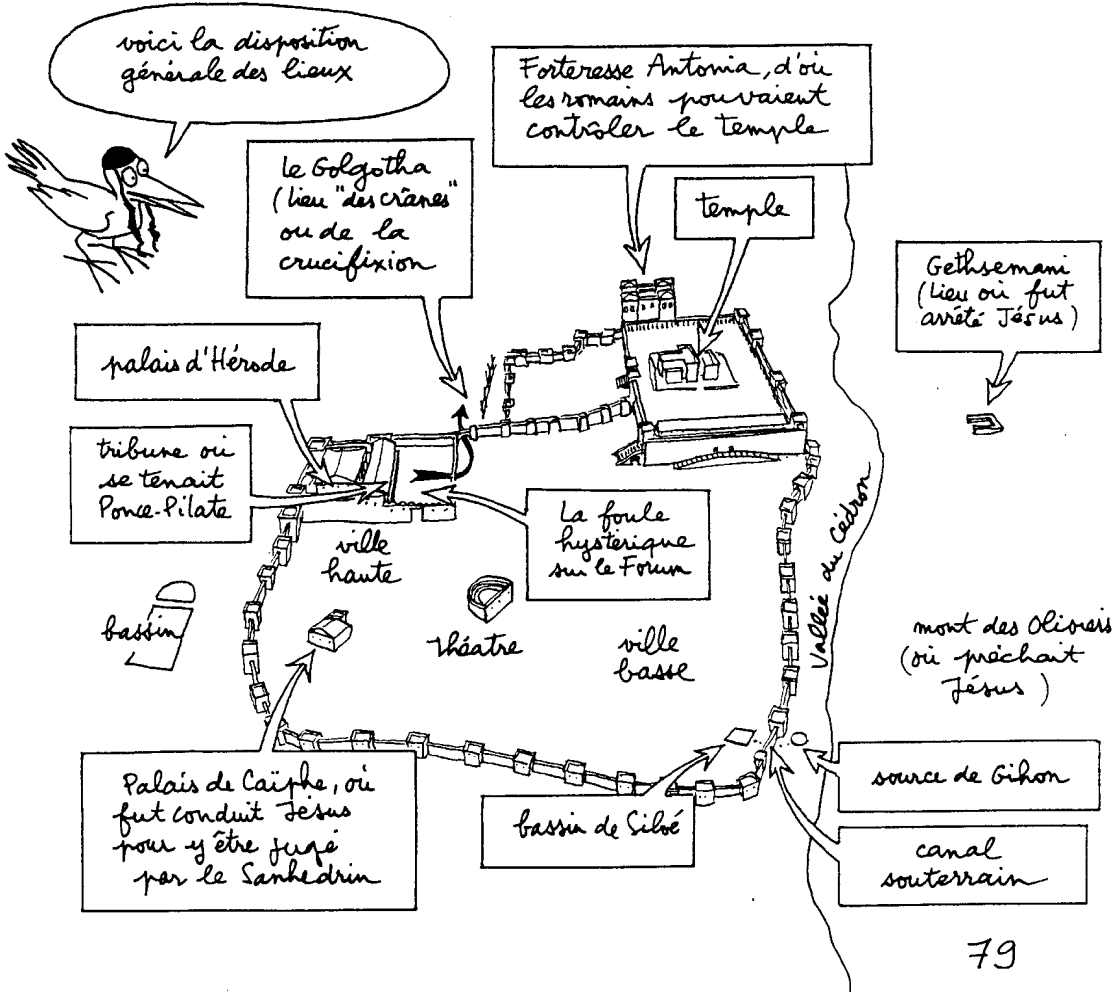 voici la disposition
générale des lieux
Forteresse Antonia, d'où
les romains pouvaient
contrôler le temple
le Golgotha
(lieu "des crânes"
ou de la
crucifixion
temple
Gethsemani
(lieu où fut
arrêté Jésus)
palais d'Hérode
tribune où
se tenait
Ponce-Pilate
La foule
hystérique
sur le Forum
ville
haute
bassin
théatre
ville
basse
Vallée du Cédron
mont des Oliviers
(où prêchait
Jésus)
Palais de Caïphe, où
fut conduit Jésus
pour y être jugé
par le Sanhedrin
bassin de Siloé
source de Gihon
canal
souterrain
79